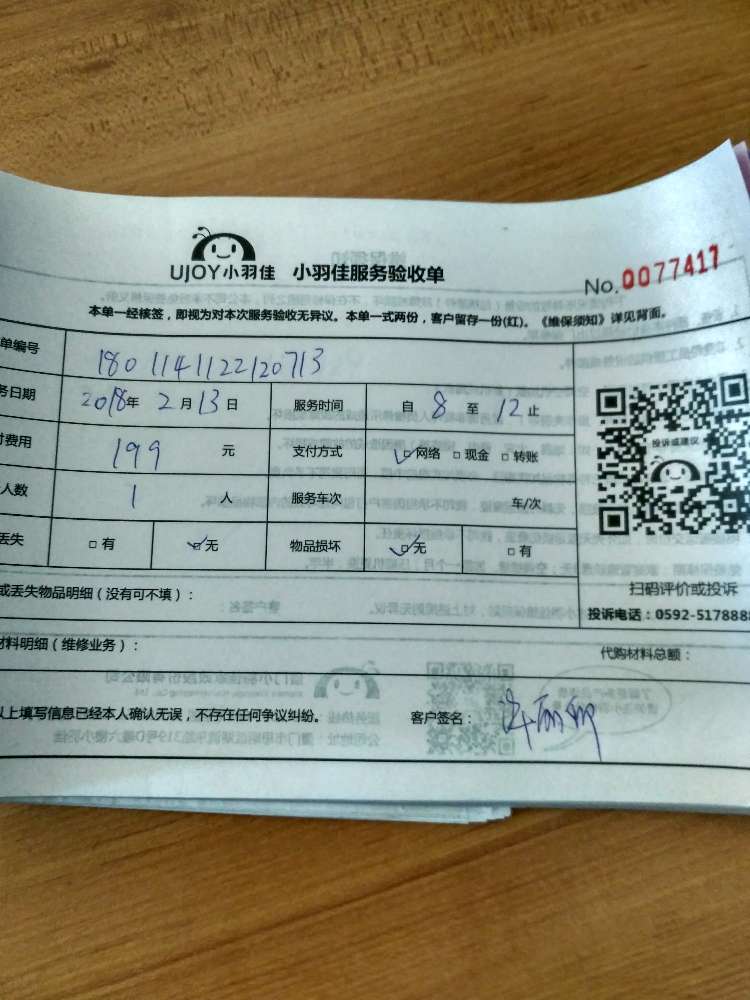 UJOY小羽佳 小羽佳服务验收单
No.0077417
本单一经核签，即视为对本次服务验收无异议。本单一式两份，客户留存一份(红)。《维保须知》详见背面。
单编号 1801141122120713
务日期 2018年 2月 13日 服务时间 自 8 至 12 止
付费用 199 元 支付方式 ☑网络 □现金 □转账
人数 1 人 服务车次 车/次
丢失 □有 ☑无 物品损坏 ☑无 □有
投诉或建议
扫码评价或投诉
投诉电话：0592-5178888
或丢失物品明细（没有可不填）：
材料明细（维修业务）： 代购材料总额：
以上填写信息已经本人确认无误，不存在任何争议纠纷。 客户签名：